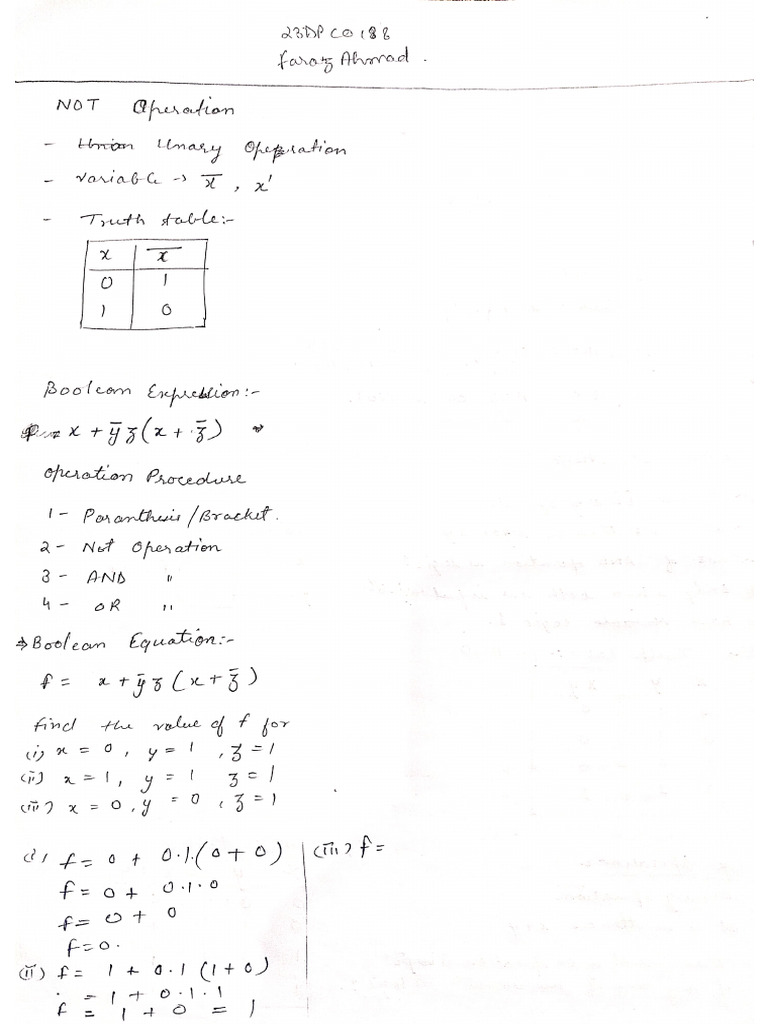 23DPCO188
Faraz Ahmad.
NOT Operation
- Unary Opepration
- variable → x̅, x'
- Truth table:-
x x̅
0 1
1 0
Boolean Expression:-
x + y̅z(x + z̅)
Operation Procedure
1 - Paranthesis/Bracket.
2 - Not Operation
3 - AND "
4 - OR "
⇒ Boolean Equation:-
f = x + y̅z (x + z̅)
find the value of f for
(i) x = 0, y = 1, z = 1
(ii) x = 1, y = 1 z = 1
(iii) x = 0, y = 0, z = 1
(i) f = 0 + 0.1.(0 + 0)
f = 0 + 0.1.0
f = 0 + 0
f = 0.
(ii) f = 1 + 0.1 (1 + 0)
= 1 + 0.1.1
f = 1 + 0 = 1
(iii) f =